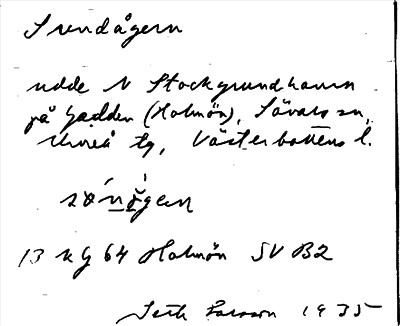 Sundågern
udde N Stockgrundhamn
på Gadden (Holmön), Sävars sn,
Umeå tg, Västerbottens l.
13 ug 64 Holmön SV B2
Seth Larsson 1935